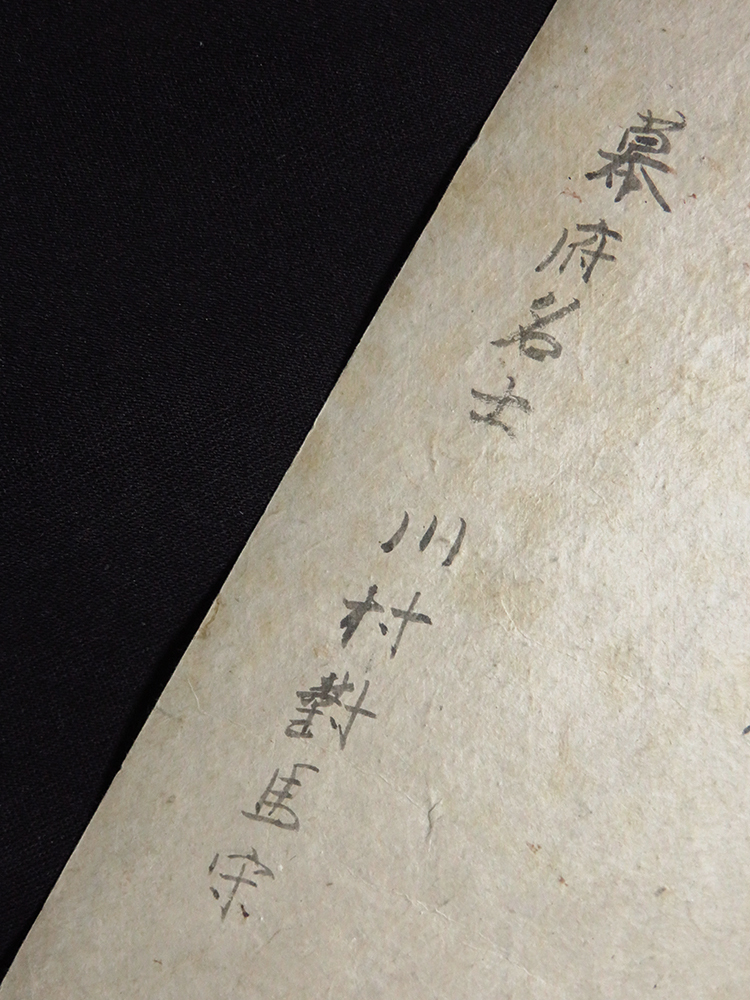 幕府名士 川村對馬守